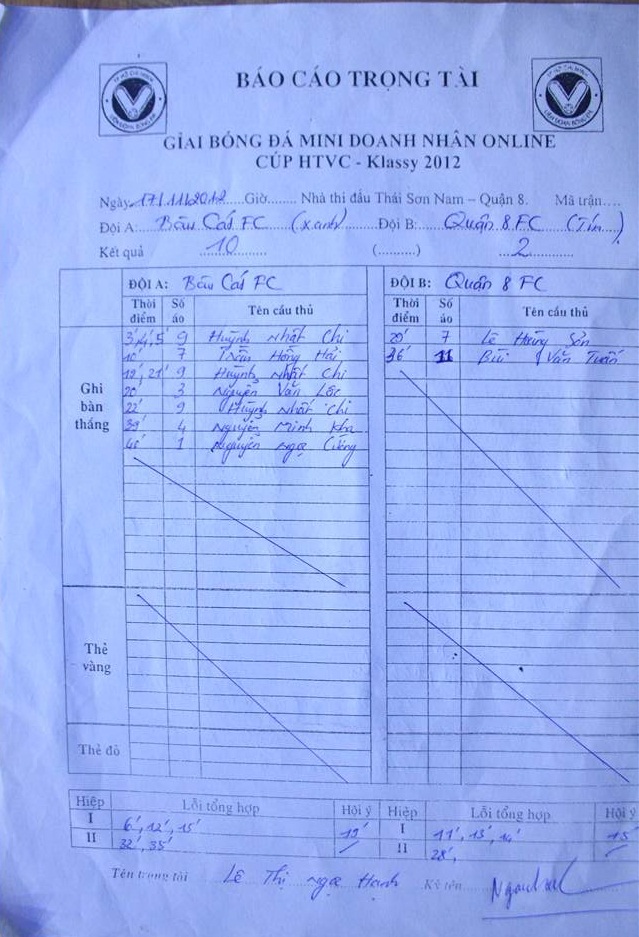 BÁO CÁO TRỌNG TÀI
GIẢI BÓNG ĐÁ MINI DOANH NHÂN ONLINE
CÚP HTVC - Klassy 2012
Ngày 17/11/2012 Giờ........ Nhà thi đấu Thái Sơn Nam – Quận 8. Mã trận....
Đội A: Bàu Cát FC (xanh) Đội B: Quận 8 FC (Tím)
Kết quả 10 (..........) 2
ĐỘI A: Bàu Cát FC ĐỘI B: Quận 8 FC
Thời điểm Số áo Tên cầu thủ Thời điểm Số áo Tên cầu thủ
Ghi bàn thắng
3', 4', 5' 9 Huỳnh Nhật Chi 20' 7 Lê Hoàng Sơn
10' 7 Trần Hồng Hải 36' 11 Bùi Văn Tuấn
19', 21' 9 Huỳnh Nhật Chi
20' 3 Nguyễn Văn Lộc
22' 9 Huỳnh Nhất Chi
39' 4 Nguyễn Minh Kha
1 Nguyễn Ngọc Cường
Thẻ vàng
Thẻ đỏ
Hiệp Lỗi tổng hợp Hội ý Hiệp Lỗi tổng hợp Hội ý
I 6', 12', 15' 19' I 11', 13', 14' 15'
II 32', 35' II 28',
Tên trọng tài Lê Thị Ngọc Hạnh Ký tên